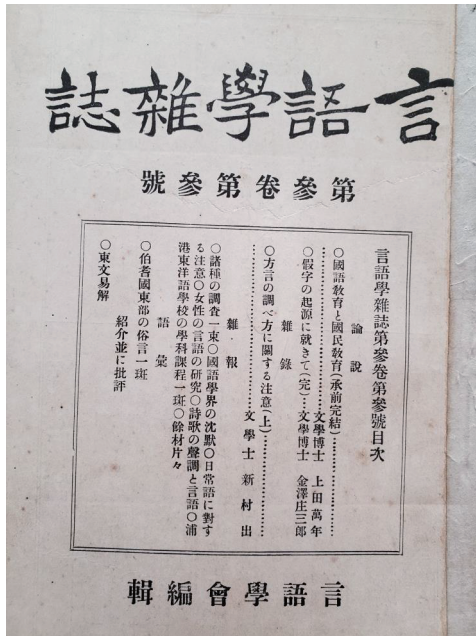 言語學雜誌
第參卷第參號
言語學雜誌第參卷第參號目次
論說
〇國語敎育と國民敎育(承前完結)……文學博士 上田萬年
〇假字の起源に就きて(完)…文學博士 金澤庄三郎
雜錄
〇方言の調べ方に關する注意(上)……
……文學士 新村出
雜報
〇諸種の調査一束〇國語學界の沈默〇日常語に對す
る注意〇女性の言語の研究〇詩歌の聲調と言語〇浦
港東洋語學校の學科課程一斑〇餘材片々
語彙
〇伯耆國東部の俗言一斑
紹介並に批評
〇東文易解
言語學會編輯